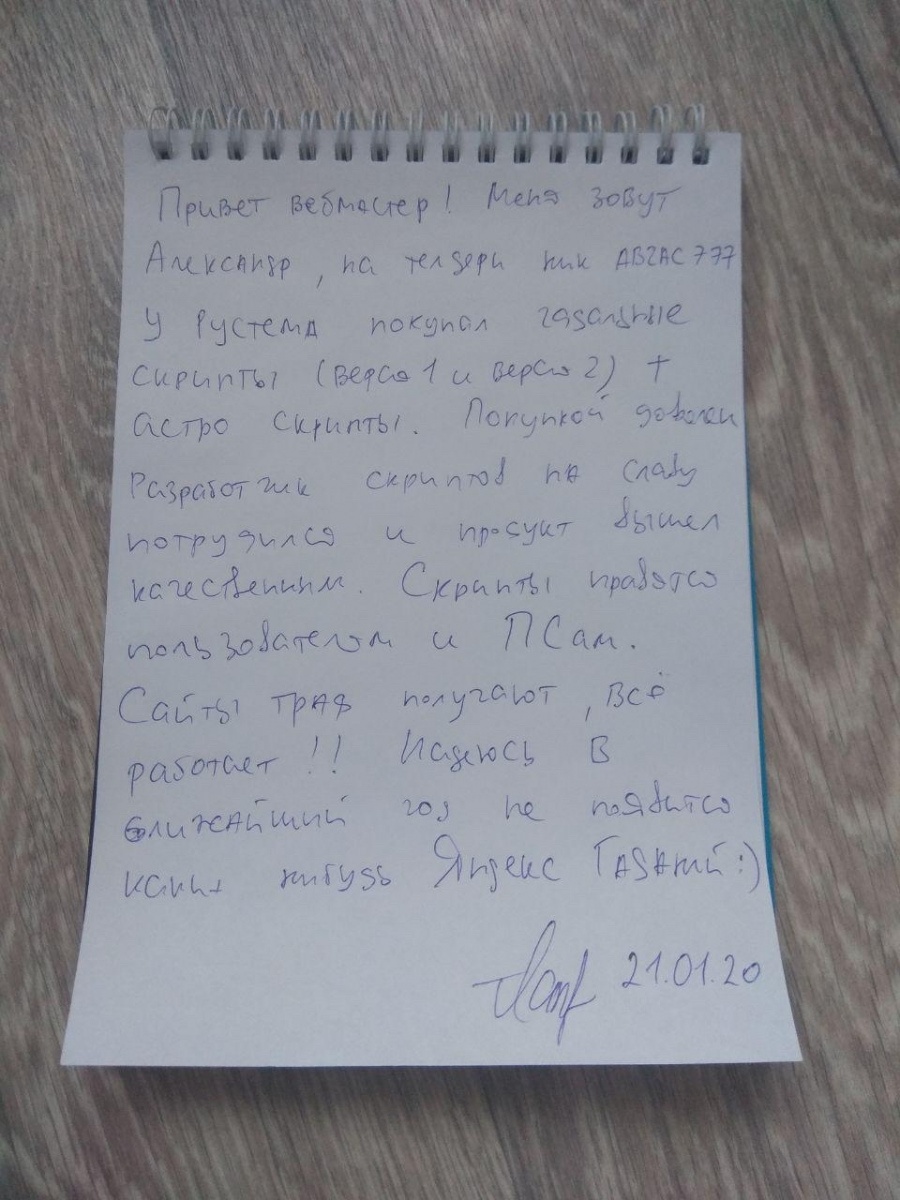 Привет вебмастер! Меня зовут
Александр, на телдери ник АВГАС777
У Рустема покупал гадальные
скрипты (версия 1 и версия 2) +
астро скрипты. Покупкой доволен
Разработчик скриптов на славу
потрудился и продукт вышел
качественным. Скрипты нравятся
пользователям и ПСам.
Сайты траф получают, всё
работает!! Надеюсь в
ближайший год не появится
каких нибудь Яндекс Гаданий:)
21.01.20